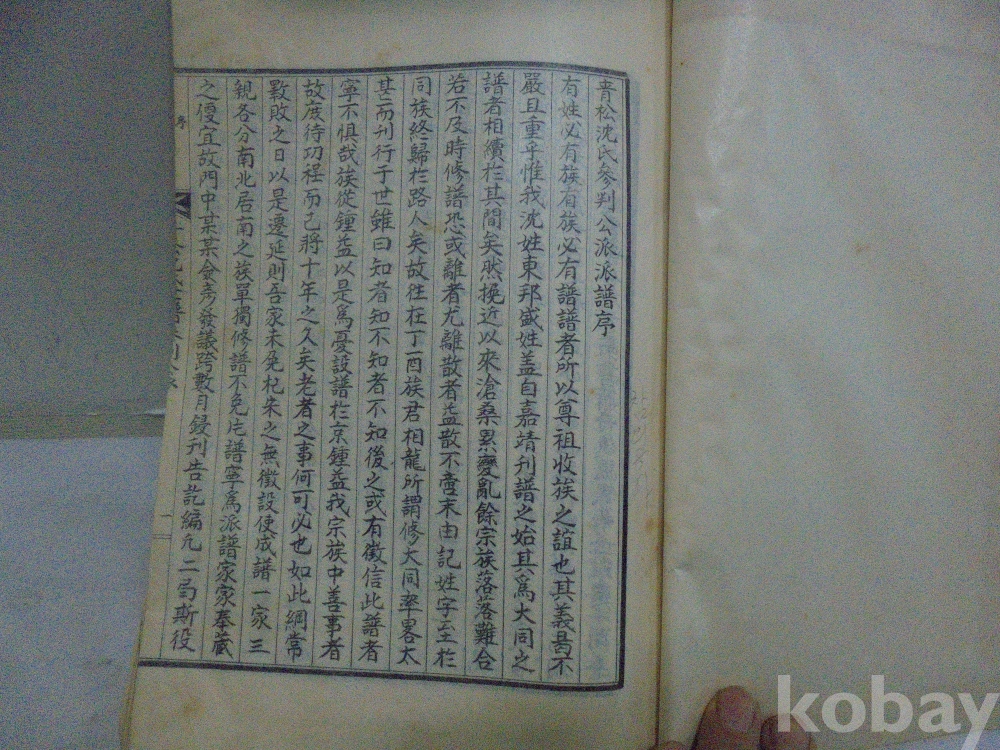 青松沈氏參判公派派譜序
有姓必有族有族必有譜譜者所以尊祖收族之誼也其義曷不
嚴且重乎惟我沈姓東邦盛姓盖自嘉靖刊譜之始其爲大同之
譜者相續於其間矣然挽近以來滄桑累變亂餘宗族落落難合
若不及時修譜恐或離者尤離散者益散不啻末由記姓字至於
同族終歸於路人矣故往在丁酉族君相龍所謂修大同率畧太
甚而刊行于世雖曰知者知不知者不知後之或有徵信此譜者
寧不惧哉族從鍾益以是爲憂設譜於京鍾益我宗族中善事者
故度待功程而已將十年之久矣老者之事何可必也如此綱常
斁敗之日以是遷延則吾家未免杞宋之無徵設使成譜一家三
親各分南北居南之族單獨修譜不免片譜寧爲派譜家家奉藏
之便宜故門中某某僉老發議跨數月鋟刊告訖編凡二局斯役
序
一
kobay